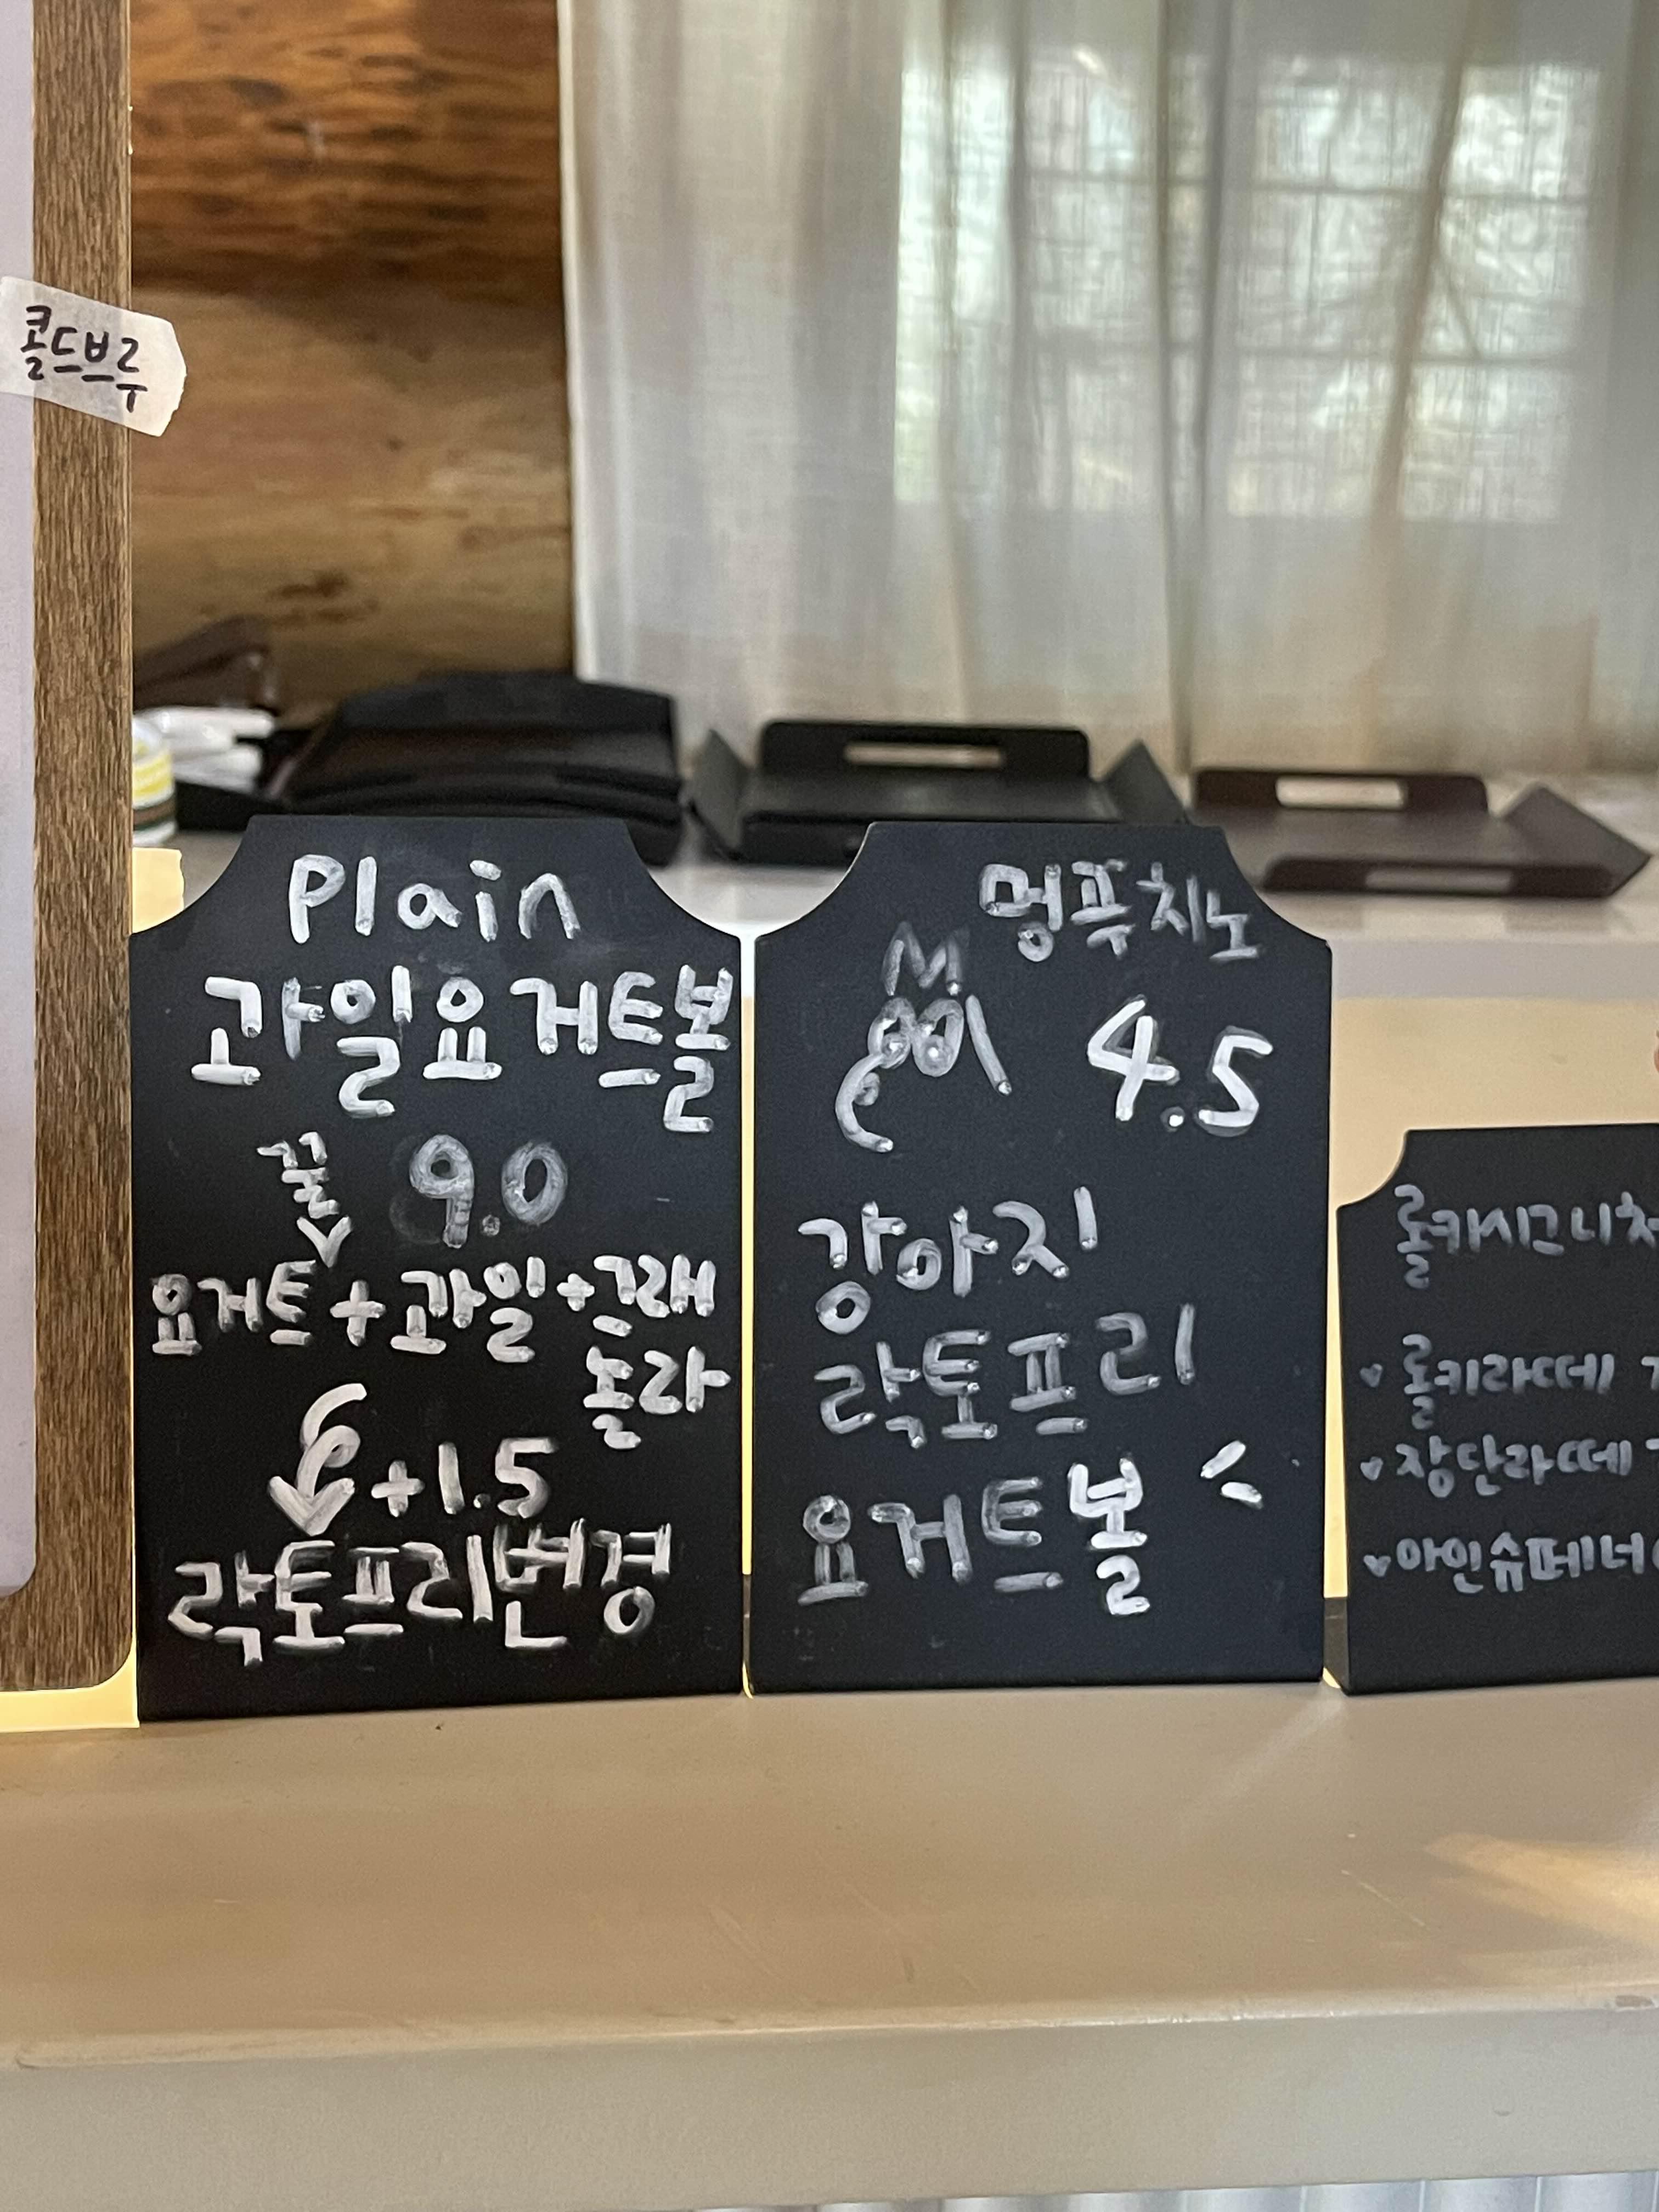 콜드브루
Plain
과일요거트볼
꿀 9.0
요거트+과일+그래
놀라
+1.5
락토프리변경
멍푸치노
4.5
강아지
락토프리
요거트볼
롤카시그니처
롤키라떼
장단라떼
아인슈페너